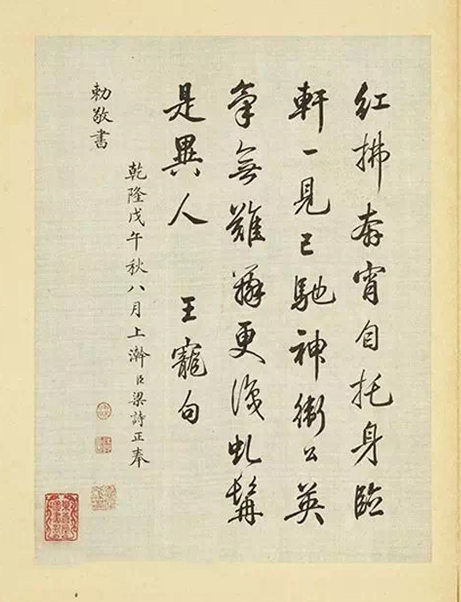 紅拂奔宵自托身臨
軒一見已馳神衛公英
氣無難辨更復虬髯
是異人 王寵句
乾隆戊午秋八月上澣臣梁詩正奉
勅敬書